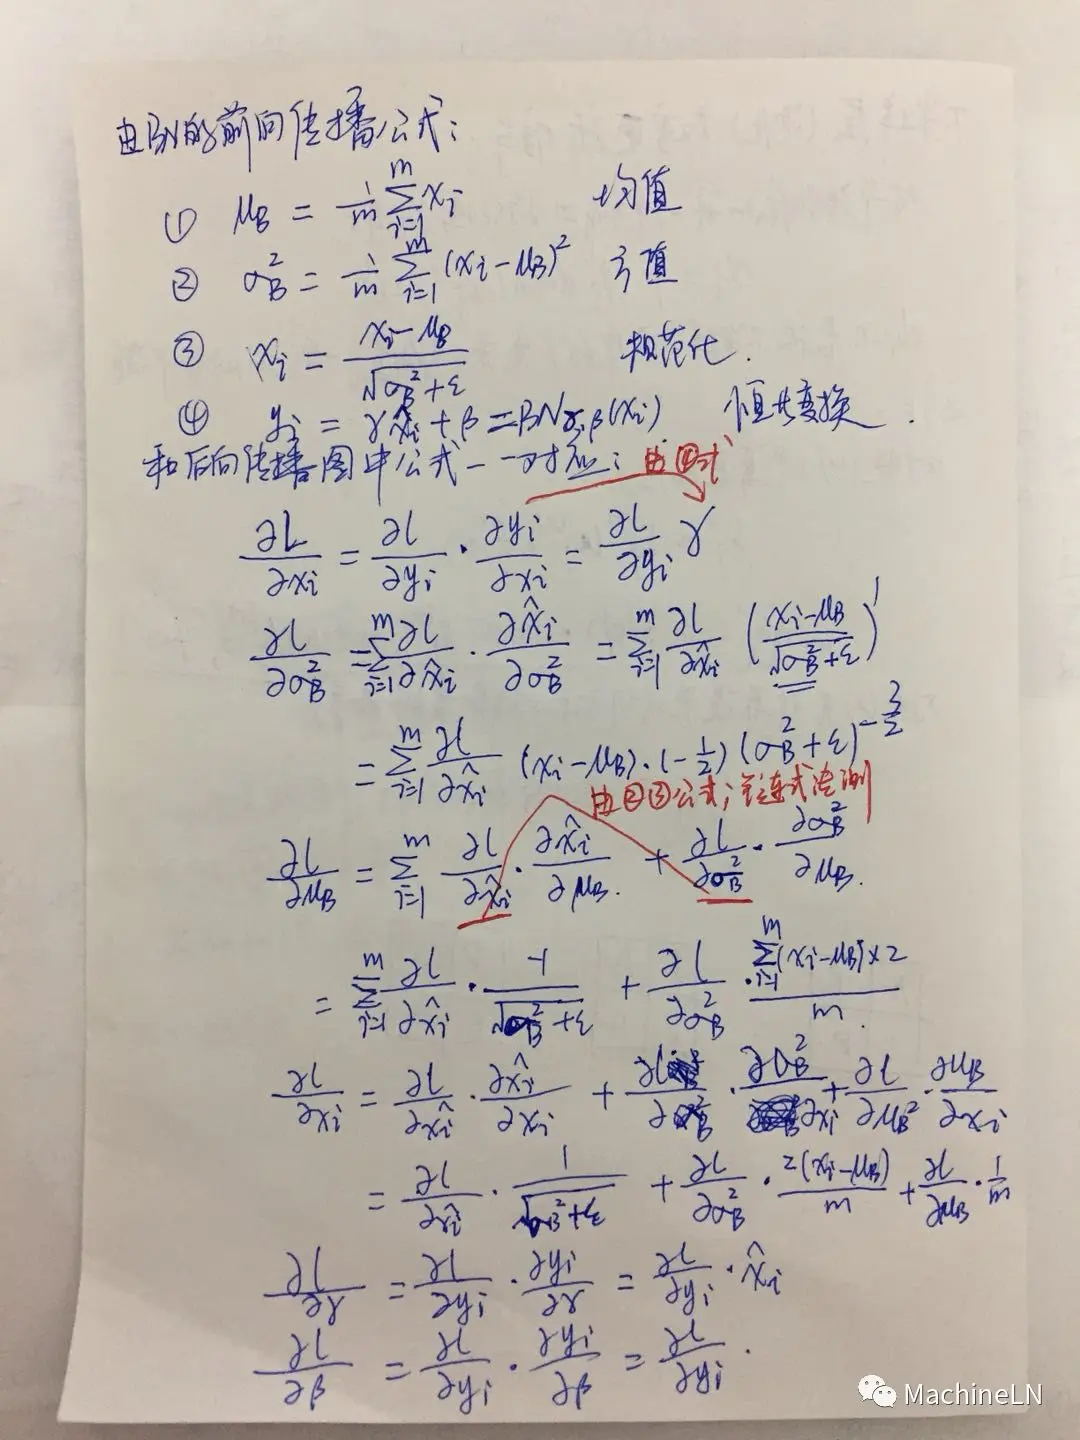 由BN的前向传播公式:
① μB = 1/m ∑_{i=1}^{m} xi 均值
② σB² = 1/m ∑_{i=1}^{m} (xi-μB)² 方值
③ xi = (xi-μB)/√(σB²+ε) 规范化.
④ yi = γx̂i+β = BNγ,β(xi) 恒大变换.
和后向传播图中公式一一对应: 由④式
∂L/∂xi = ∂l/∂yi · ∂yi/∂xi = ∂l/∂yi γ
∂l/∂σB² = ∑_{i=1}^{m} ∂l/∂x̂i · ∂x̂i/∂σB² = ∑_{i=1}^{m} ∂l/∂x̂i ((xi-μB)/√(σB²+ε))'
= ∑_{i=1}^{m} ∂l/∂x̂i (xi-μB)·(-1/2)(σB²+ε)^{-3/2}
由②③公式;链式法则
∂l/∂μB = ∑_{i=1}^{m} ∂l/∂x̂i · ∂x̂i/∂μB. + ∂l/∂σB² · ∂σB²/∂μB.
= ∑_{i=1}^{m} ∂l/∂x̂i · -1/√(σB²+ε) + ∂l/∂σB² · ∑_{i=1}^{m}(xi-μB)×2/m.
∂l/∂xi = ∂l/∂x̂i · ∂x̂i/∂xi + ∂l/∂σB² · ∂σB²/∂xi + ∂l/∂μB² · ∂μB/∂xi
= ∂l/∂x̂i · 1/√(σB²+ε) + ∂l/∂σB² · 2(xi-μB)/m + ∂l/∂μB · 1/m
∂l/∂γ = ∂l/∂yi · ∂yi/∂γ = ∂l/∂yi · x̂i
∂l/∂β = ∂l/∂yi · ∂yi/∂β = ∂l/∂yi ·
MachineLN